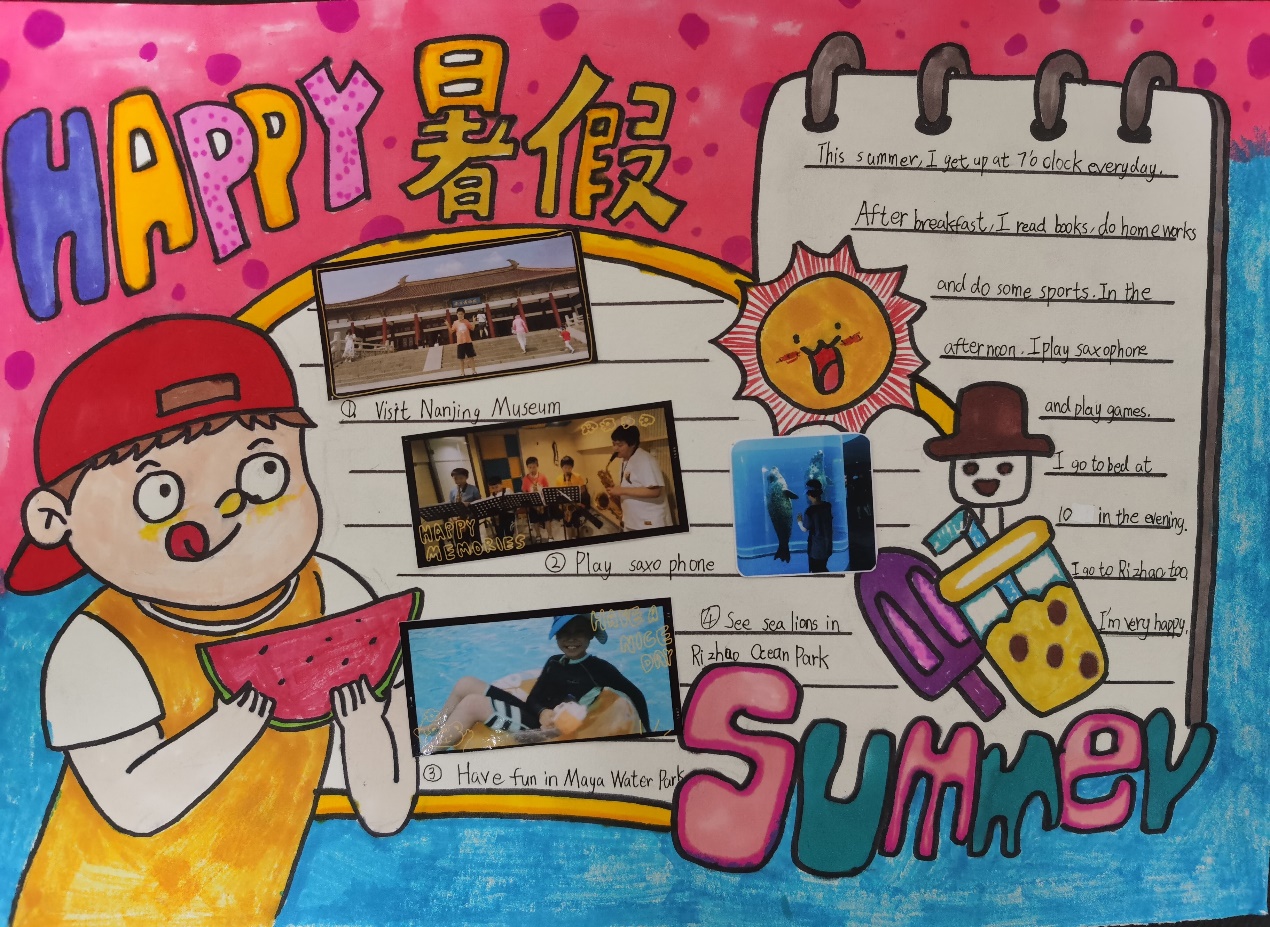 HAPPY 暑假
This summer, I get up at 7'o clock everyday.
After breakfast, I read books, do homeworks
and do some sports. In the
afternoon. I play saxophone
and play games.
I go to bed at
10 in the evening.
I go to Rizhao too,
I'm very happy.
① Visit Nanjing Museum
HAPPY
MEMORIES
② Play saxophone
HAVE A
NICE
DAY
③ Have fun in Maya Water Park
④ See sea lions in
Rizhao Ocean Park
Summer